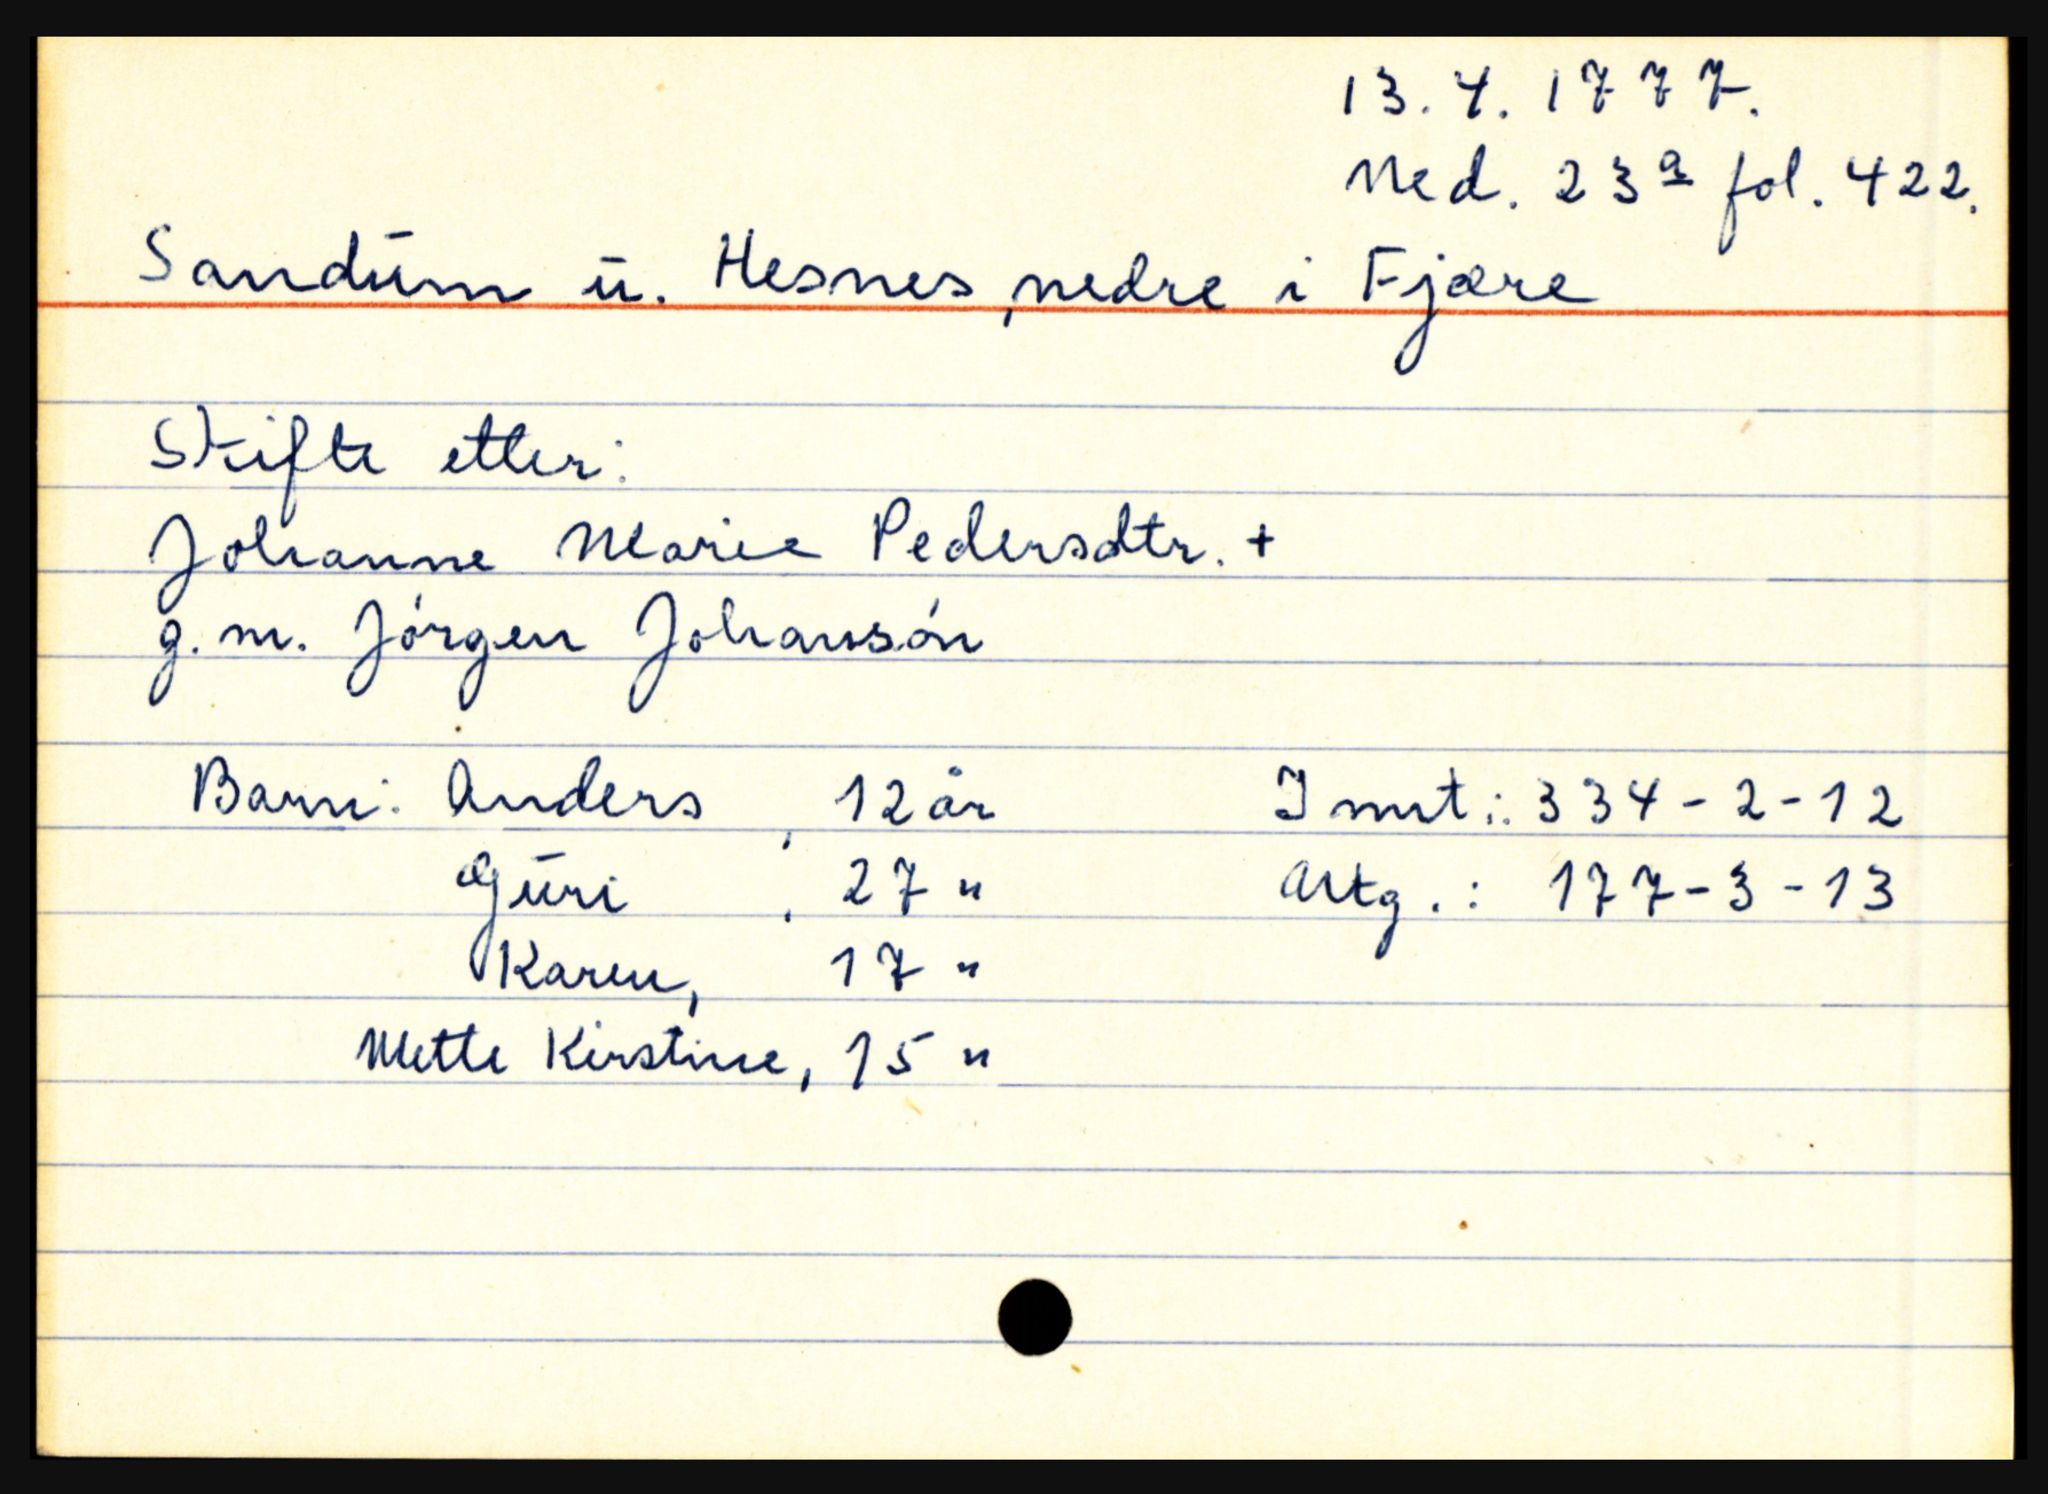 13.4.1777.
Ned. 23a fol. 422.
Sandum u. Hesnes, nedre i Fjære
Skifte etter:
Johanne Marie Pedersdtr. +
g. m. Jörgen Johanssön
Barn: Anders, 12 år Innt.: 334-2-12
Guri, 27 " Utg.: 177-3-13
Karen, 17 "
Mette Kirstine, 15 "